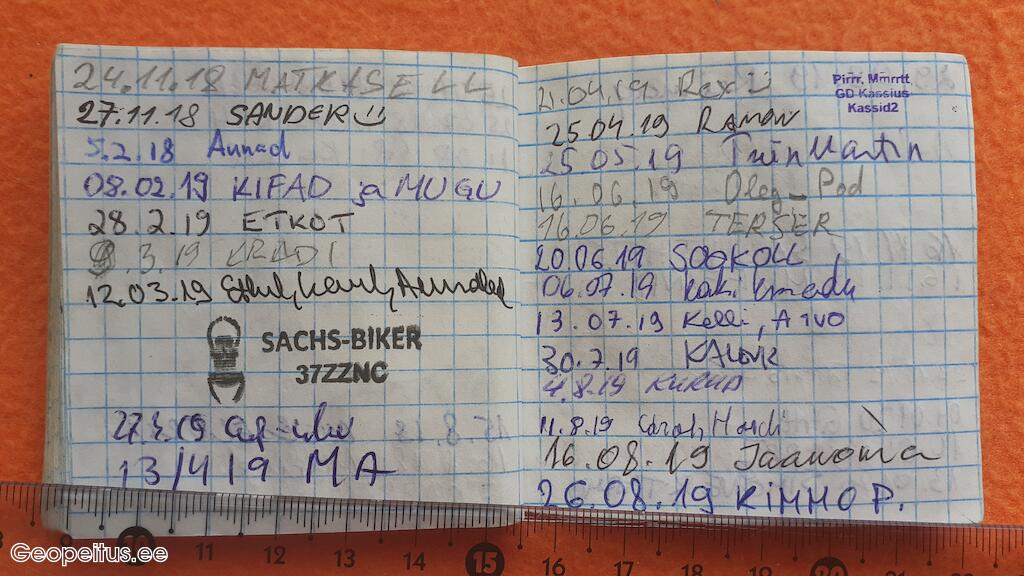 24.11.18 MATKASELL
27.11.18 SANDER
5.2.18 Annad
08.02.19 KIFAD ja MUGU
28.2.19 ETKOT
.3.19 KRADI
12.03.19
SACHS-BIKER
37ZZNC
13/419 MA
21.04.19
Pirr, Mmrrtt
GD Kassius
Kassid2
25.04.19 RAMON
25.05.19 Triin Martin
16.06.19 Oleg_Pod
16.06.19 TERSER
20.06.19 SOOKOLL
06.07.19
13.07.19 Kelli, Arvo
30.7.19
4.8.19
11.8.19 Sarah,
16.08.19 Jaanoma
26.08.19 KiMMO P.
9 10 11 12 13 14 15 16 17 18 19 20 21 22
Geopeitus.ee